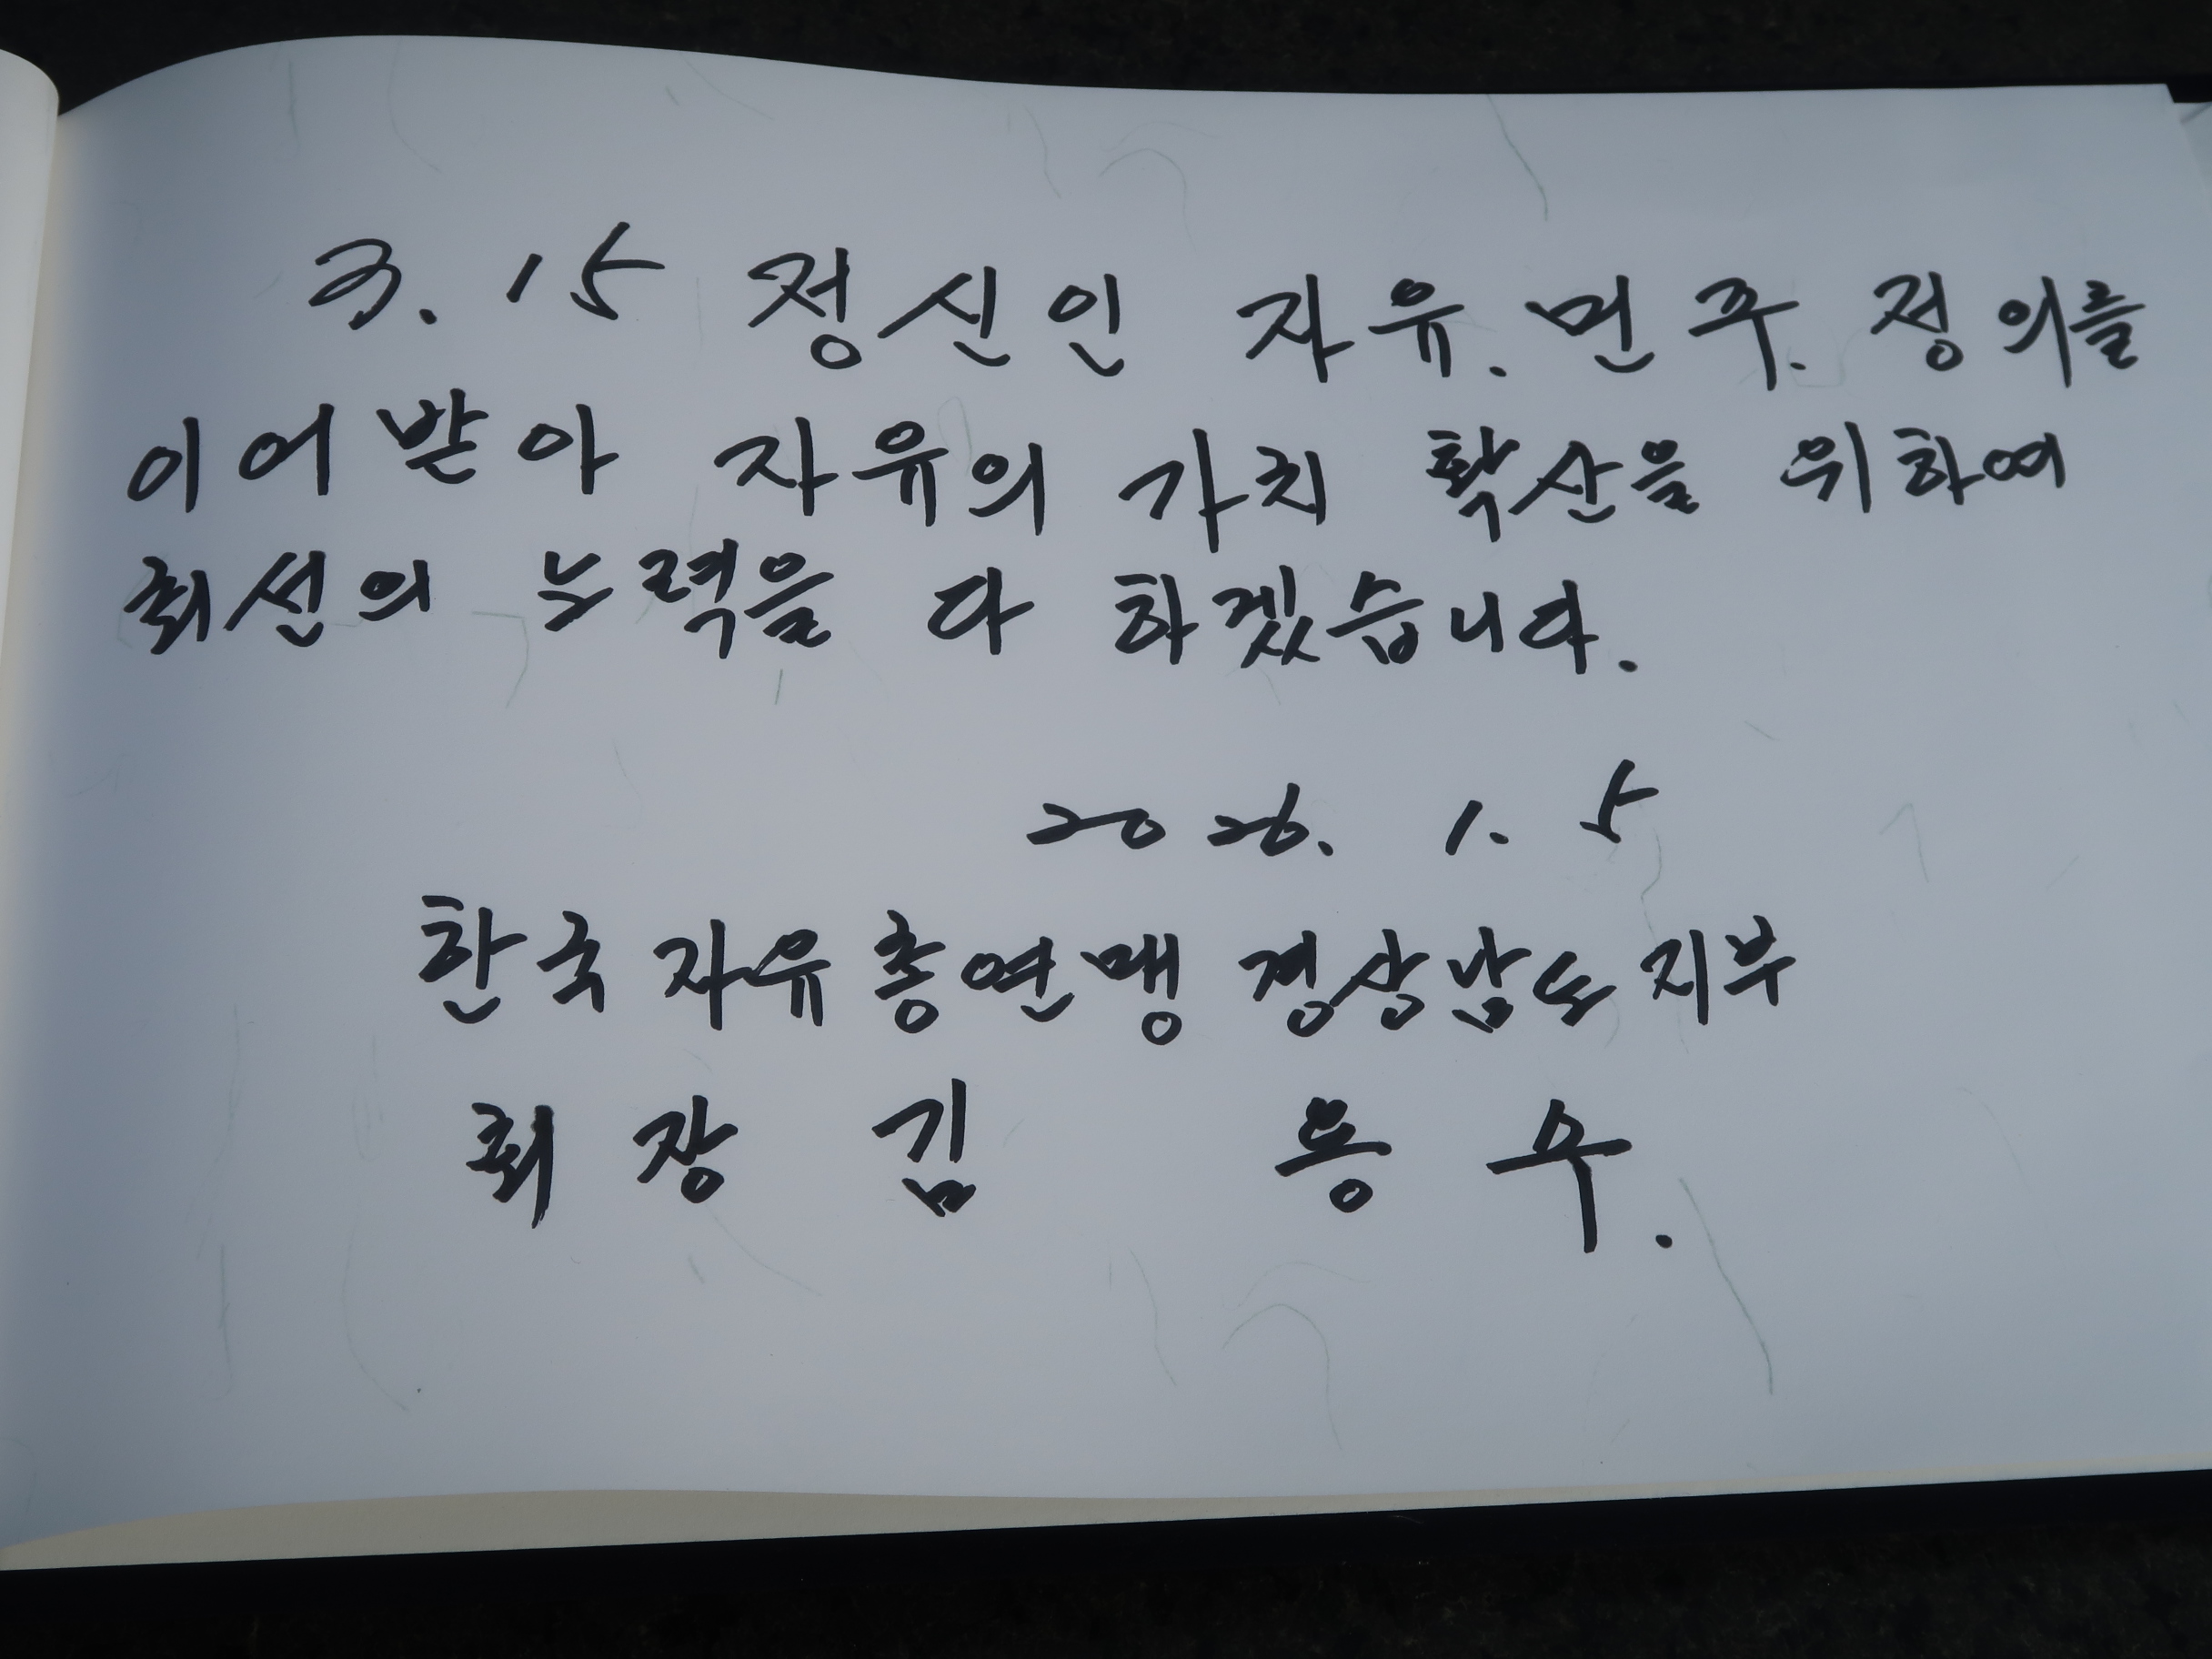 3. 15 정신인 자유. 민주. 정의를
이어받아 자유의 가치 확산을 위하여
최선의 노력을 다 하겠습니다.
2026. 1. 5
한국자유총연맹 경상남도지부
회장 김 용 수.